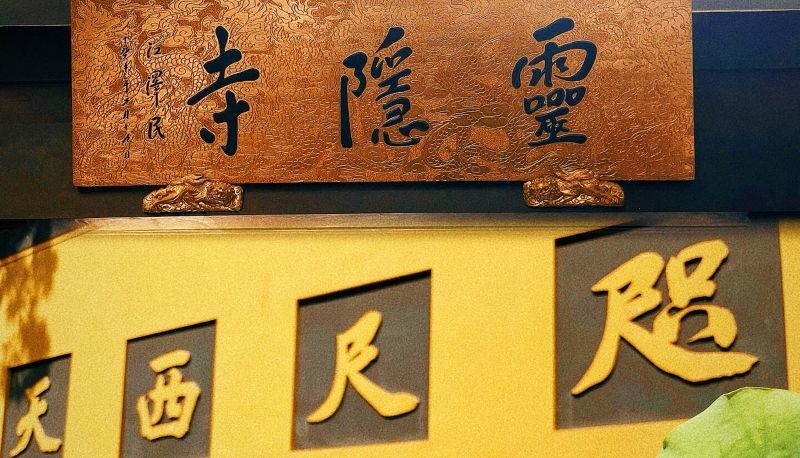 靈隱寺
江澤民
咫尺西天